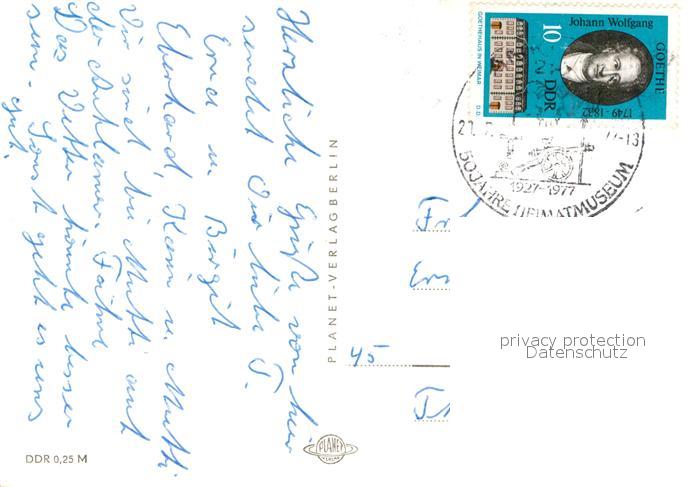 Herzliche Grüße von hier
sendet Dir liebe T.
Erna u. Birgit
Eberhard, Karin u. Mutti
Wir sind bei Mutti auf
der
Das Wetter könnte besser
sein. Sonst geht es uns
gut.
DDR 0,25 M
PLANET-VERLAG BERLIN
PLANET
VERLAG
GOETHEHAUS IN WEIMAR
Johann Wolfgang
GOETHE
1749-1832
10
DDR
27-13
50 JAHRE HEIMATMUSEUM
1927-1977
45
privacy protection
Datenschutz